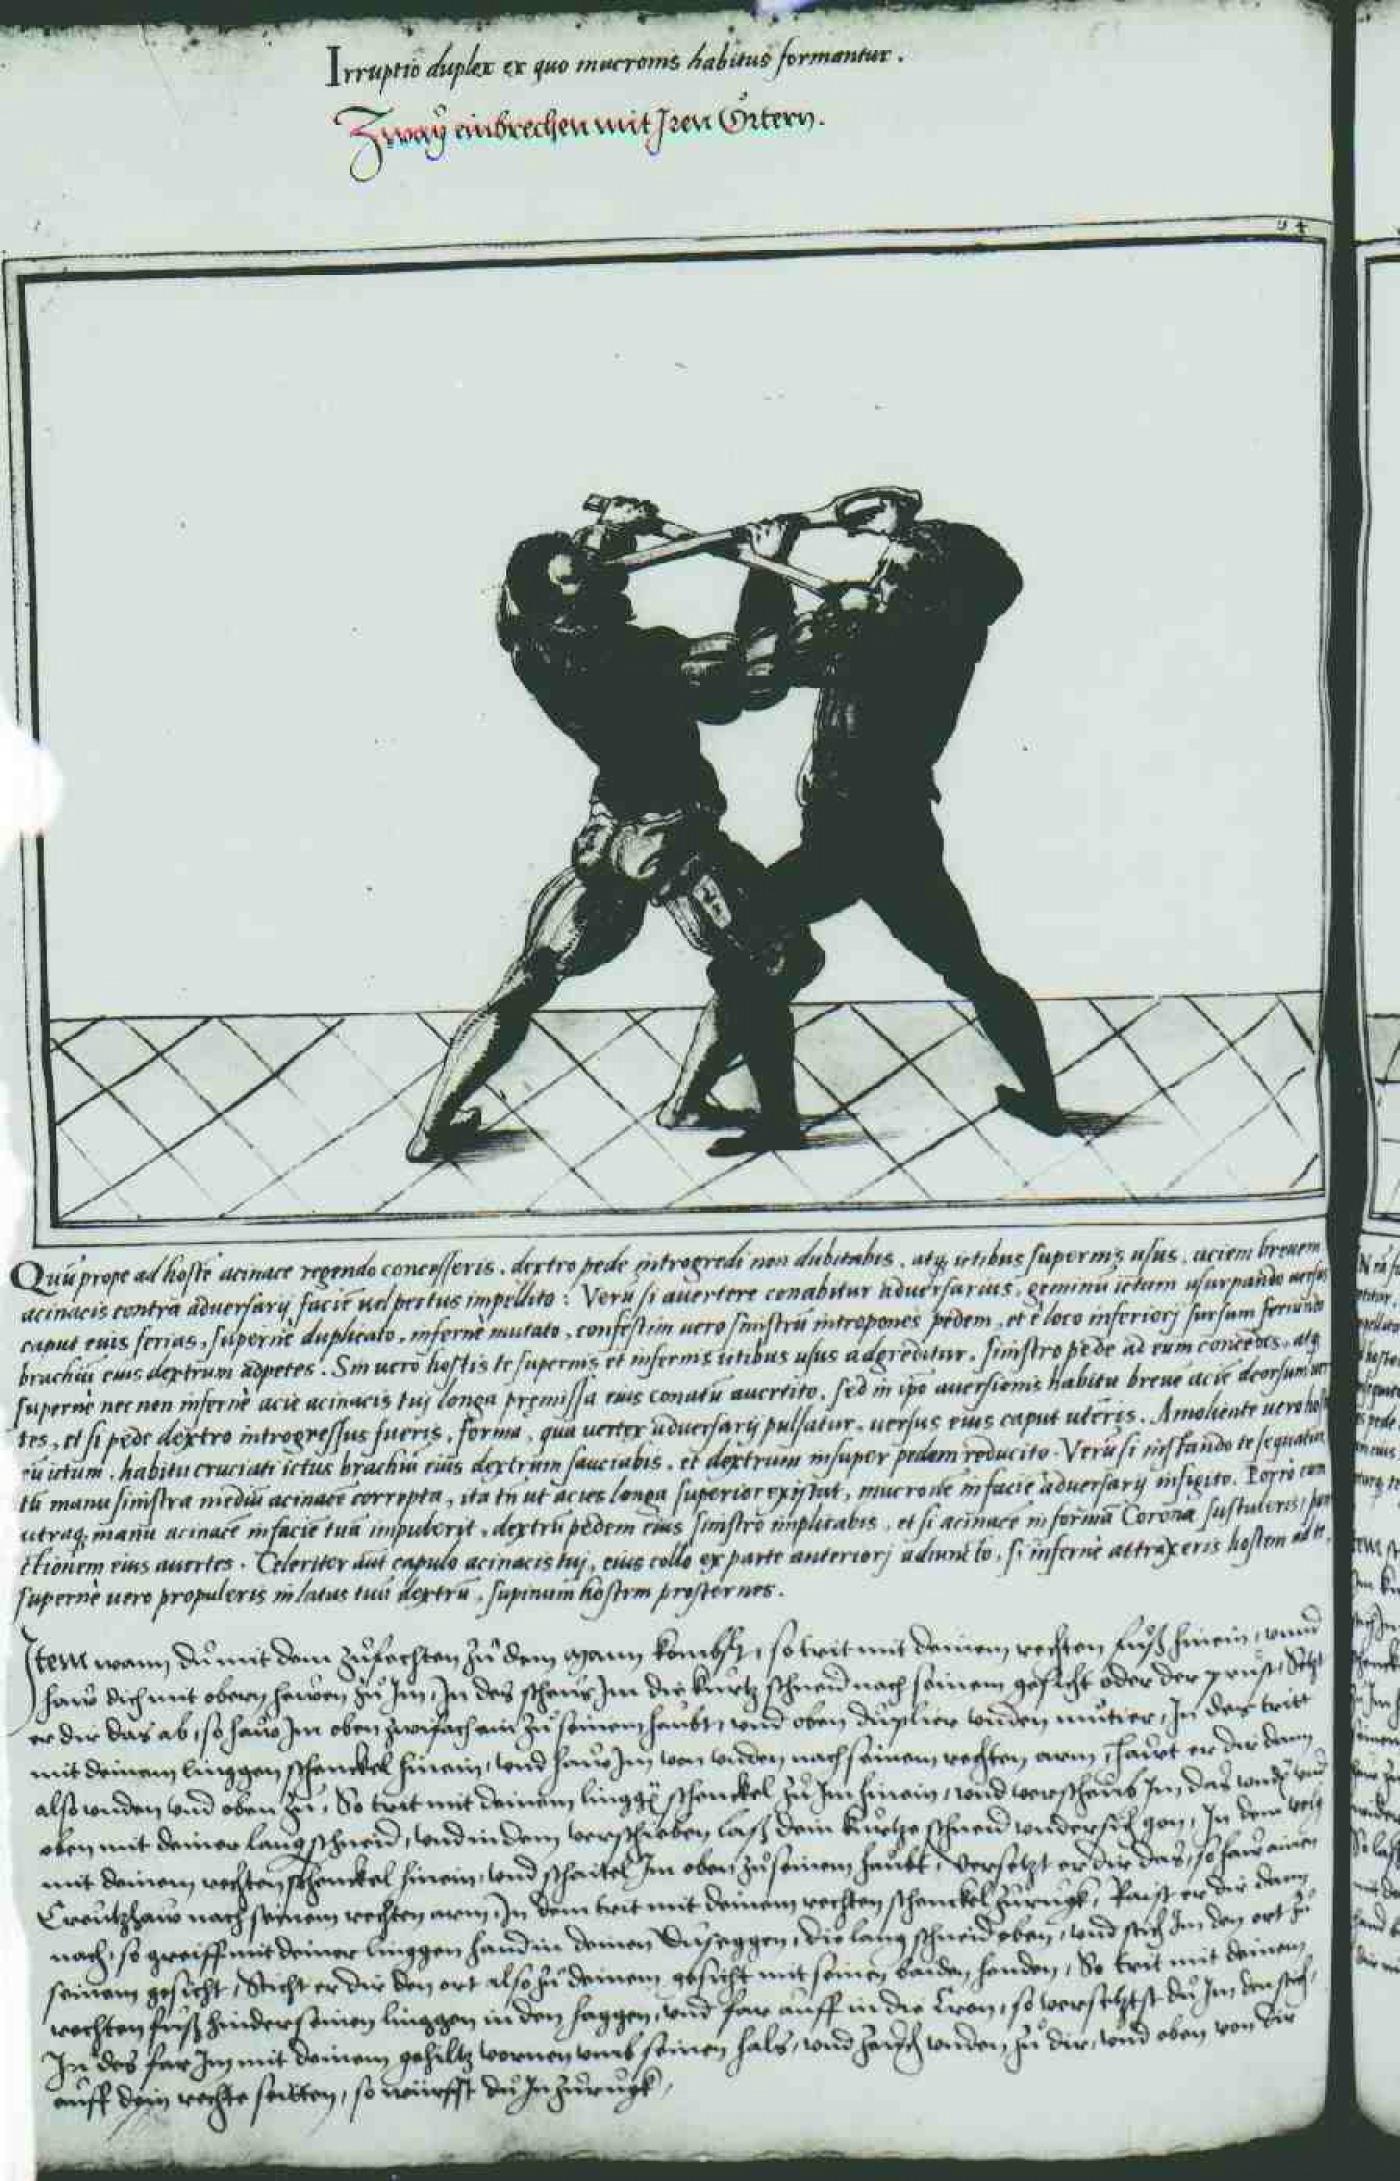 Irruptio duplex ex quo mucronis habitus formantur.
Zway einbrechen mit Iren Örtern.
54
Quũ prope ad hostẽ acinace regendo concesseris, dextro pede introgredi non dubitabis, atq; ictibus supernis usus, aciem breuem
acinacis contra aduersarij faciẽ uel pectus impellito: Verũ si auertere conabitur aduersarius, geminũ ictum usurpando uersus
caput euis ferias, supernè duplicato, infernè mutato, confestim uero sinistrũ intropones pedem, et è loco inferiorj sursum feriendo
brachiũ eius dextrum adpetes. Sin uero hostis te supernis et infernis ictibus usus adgreditur, sinistro pede ad eum concedes, atq;
supernè nec non infernè acie acinacis tuj longa præmissa euis conatũ auertito, sed in ipo auersionis habitu breue aciẽ deorsum uer
tes, et si pede dextro introgressus fueris, forma, qua uertex aduersarij pulsatur, uersus eius caput uteris. Amoliente uero hoste
eũ ictum, habitu cruciati ictus brachiũ eius dextrum sauciabis, et dextrum insuper pedem reducito. Verũ si instando te sequatur
tũ manu sinistra mediũ acinacẽ correpta, ita tñ ut acies longa superior existat, mucronẽ in faciẽ aduersarij insigito. Porrò cum
utraq; manu acinacẽ in faciẽ tuam impulerit, dextrũ pedem euis sinistro implicabis, et si acinacẽ in formã Corona sustuleris, pun
ctionem eius auertes. Celeriter aũt capulo acinacis tuj, eius collo ex parte anteriorj adiuncto, si infernè attraxeris hostem ad te,
supernè uero propuleris in latus tuũ dextrũ, supinum hostem prosternes.
Item wann du mit dem zufechten zu dem man kombst, so trit mit deinem rechten fuß hinein, vnnd
haw dich mit obern hewen zu Im, In des scheub Im die kurtz schneid nach seinem gesicht oder der prust, Setzt
er dir das ab, so haw Im oben zwifach ain zu seinem haubt, vnd oben duplier vnden mutier, In des tritt
mit deinem linggen schenckel hinein, vnd haw Im von vnden nach seinem rechten arm, Hawt er dir dann
also vnden vnd oben zu, So trit mit deinem lingg̃ schenckel zu Im hinein, vnd verscheub Im das vnd̃ vnd
oben mit deiner lang schneid, vnd in dem verschieben laß dein kurtze schneid vndersich gon, In dem
mit deinem rechten schenckel hinein, vnd schaitel Im oben zu seinem haubt, Versetzt er dir das, so haw ainen
Creutzhaw nach seinem rechten arm, In dem trit mit deinem rechten schenckel zuruck, Raist er dir dann
nach, so greiff mit deiner linggen hand in deinen Duseggen, die lang schneid oben, vnd stich Im den ort zu
seinem gesicht, Sticht er dir den ort also zu deinem gesicht mit seinen baiden henden, So trit mit deinem
rechten fuß hinder seinen linggen in den haggen, vnd far auff in die Cron, so versetzst du Im den stich,
In des far Im mit deinem gehiltz vornen vmb seinen hals, vnd zeuch vnden zu dir, vnd oben von dir
auff dein rechte seitten, so würffst du In zuruck,